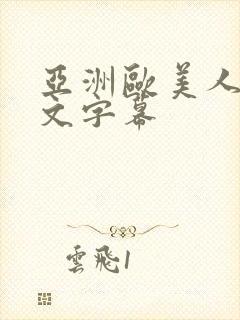 亞洲歐美人
文字幕
雲飛1